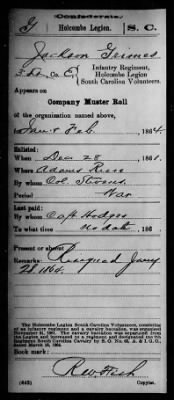 Confederate.
G Holcombe Legion. S. C.
Jackson Grimes
Co. E, Infantry Regiment,
Holcombe Legion
South Carolina Volunteers.
Appears on
Company Muster Roll
of the organization named above,
for Jan & Feb, 1864.
Enlisted:
When Dec 28, 1861.
Where Adams Run
By whom Col. Stevens
Period War
Last paid:
By whom Capt Hodges
To what time no date, 186
Present or absent
Remarks: Resigned Jany
28 1864.
The Holcombe Legion South Carolina Volunteers, consisting
of an infantry regiment and a cavalry battalion, was organized
November 21, 1861. The cavalry battalion was separated from
the Legion and increased to a regiment and designated the 7th
Regiment South Carolina Cavalry by S. O. No. 65, A. & I. G. O.,
dated March 18, 1864.
Book mark:
(642) Copyist.